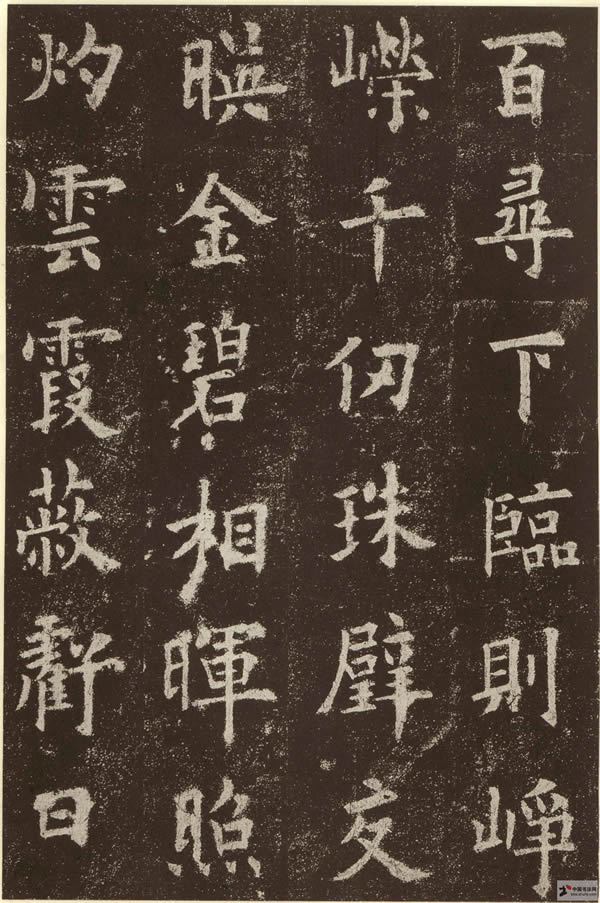 百尋下臨則崢
嶸千仞珠璧交
暎金碧相暉照
灼雲霞蔽虧日
中国书法网